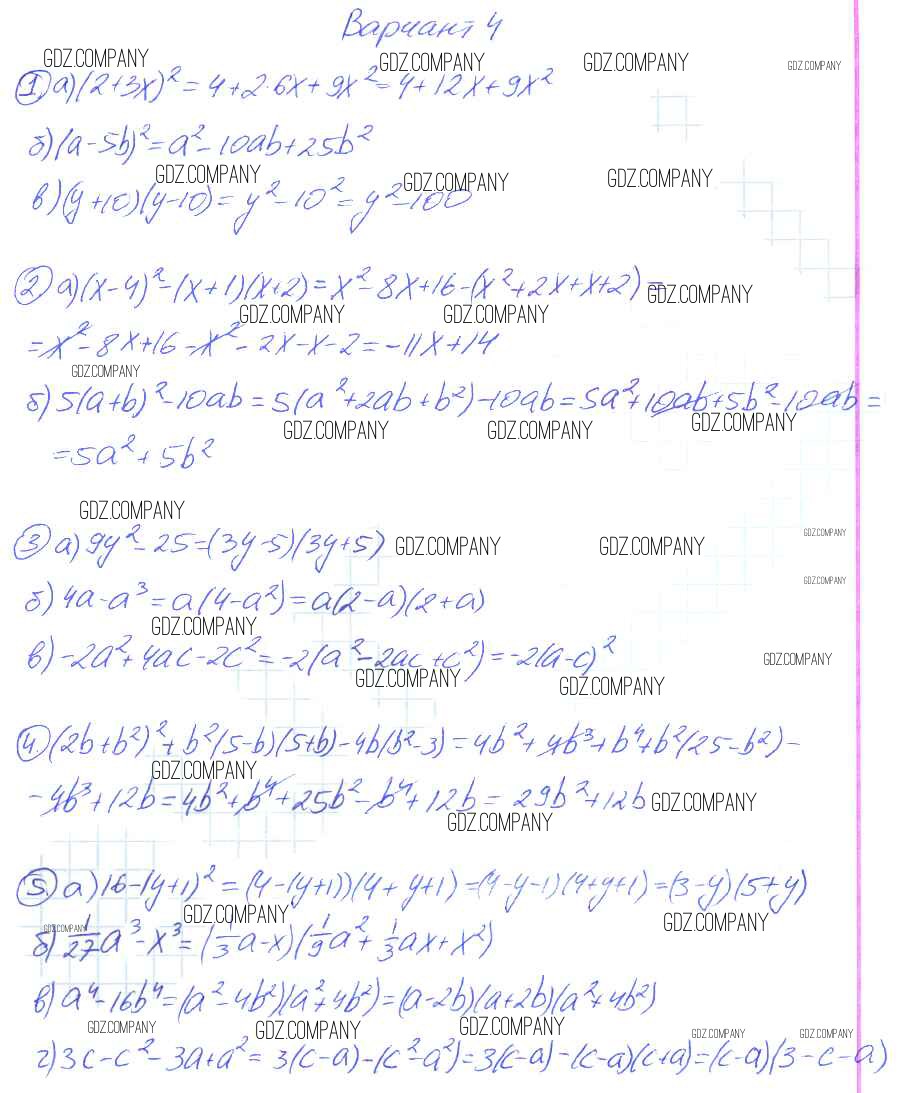 Вариант 4
GDZ.COMPANY GDZ.COMPANY GDZ.COMPANY GDZ.COMPANY
① а) (2+3x)² = 4+2·6x+9x² = 4+12x+9x²
б) (a-5b)² = a²-10ab+25b²
GDZ.COMPANY GDZ.COMPANY GDZ.COMPANY
в) (y+10)(y-10) = y²-10² = y²-100
② а) (x-4)²-(x+1)(x+2) = x²-8x+16-(x²+2x+x+2) =
GDZ.COMPANY GDZ.COMPANY GDZ.COMPANY
= x²-8x+16-x²-2x-x-2 = -11x+14
GDZ.COMPANY
б) 5(a+b)²-10ab = 5(a²+2ab+b²)-10ab = 5a²+10ab+5b²-10ab =
GDZ.COMPANY GDZ.COMPANY GDZ.COMPANY
= 5a²+5b²
GDZ.COMPANY
③ а) 9y²-25 = (3y-5)(3y+5) GDZ.COMPANY GDZ.COMPANY GDZ.COMPANY
GDZ.COMPANY
б) 4a-a³ = a(4-a²) = a(2-a)(2+a)
GDZ.COMPANY
в) -2a²+4ac-2c² = -2(a²-2ac+c²) = -2(a-c)²
GDZ.COMPANY GDZ.COMPANY GDZ.COMPANY
④ (2b+b²)²+b²(5-b)(5+b)-4b(b²-3) = 4b²+4b³+b⁴+b²(25-b²)-
GDZ.COMPANY
-4b³+12b = 4b²+b⁴+25b²-b⁴+12b = 29b²+12b GDZ.COMPANY
GDZ.COMPANY
⑤ а) 16-(y+1)² = (4-(y+1))(4+y+1) = (4-y-1)(4+y+1) = (3-y)(5+y)
GDZ.COMPANY GDZ.COMPANY GDZ.COMPANY
б) 1/27a³-x³ = (1/3a-x)(1/9a²+1/3ax+x²)
в) a⁴-16b⁴ = (a²-4b²)(a²+4b²) = (a-2b)(a+2b)(a²+4b²)
GDZ.COMPANY GDZ.COMPANY GDZ.COMPANY GDZ.COMPANY GDZ.COMPANY
г) 3c-c²-3a+a² = 3(c-a)-(c²-a²) = 3(c-a)-(c-a)(c+a) = (c-a)(3-c-a)